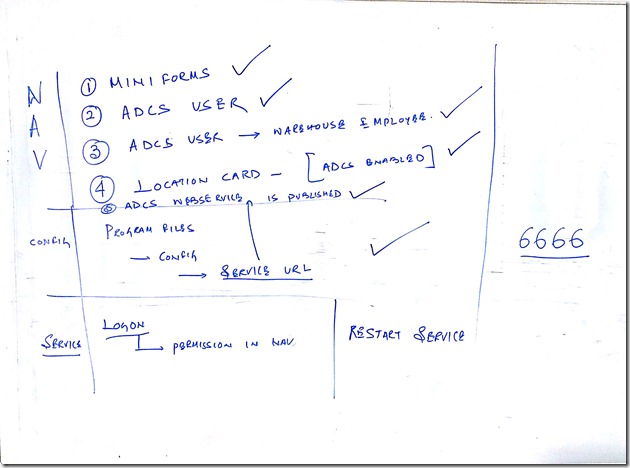 NAV
① MINIFORMS ✓
② ADCS USER ✓
③ ADCS USER → WAREHOUSE EMPLOYEE. ✓
④ LOCATION CARD – [ADCS ENABLED] ✓
⑤ ADCS WEBSERVICE IS PUBLISHED ✓
CONFIG
PROGRAM FILES
→ CONFIG
→ SERVICE URL ✓
6666
SERVICE
LOGON
→ PERMISSION IN NAV
RESTART SERVICE